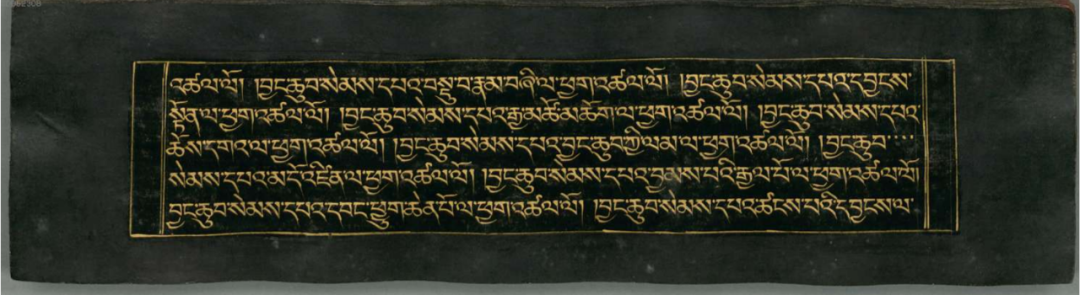 འཚལ་ལོ། །བྱང་ཆུབ་སེམས་དཔའ་བསྡུ་བ་རྣམ་བཞི་ལ་ཕྱག་འཚལ་ལོ། །བྱང་ཆུབ་སེམས་དཔའ་ད་བྱངས་
སྟོན་ལ་ཕྱག་འཚལ་ལོ། །བྱང་ཆུབ་སེམས་དཔའ་རྒྱ་མཚོ་མཆོག་ལ་ཕྱག་འཚལ་ལོ། །བྱང་ཆུབ་སེམས་དཔའ་
ཆོས་དགའ་ལ་ཕྱག་འཚལ་ལོ། །བྱང་ཆུབ་སེམས་དཔའ་བྱང་ཆུབ་ཀྱི་ལམ་ལ་ཕྱག་འཚལ་ལོ། །བྱང་ཆུབ་
སེམས་དཔའ་མ་ངོ་འཛིན་ལ་ཕྱག་འཚལ་ལོ། །བྱང་ཆུབ་སེམས་དཔའ་བྱམས་པའི་རྒྱལ་པོ་ལ་ཕྱག་འཚལ་ལོ།
བྱང་ཆུབ་སེམས་དཔའ་དབང་ཕྱུག་ཆེན་པོ་ལ་ཕྱག་འཚལ་ལོ། །བྱང་ཆུབ་སེམས་དཔའ་ཚངས་པའི་ད་བྱངས་ལ་